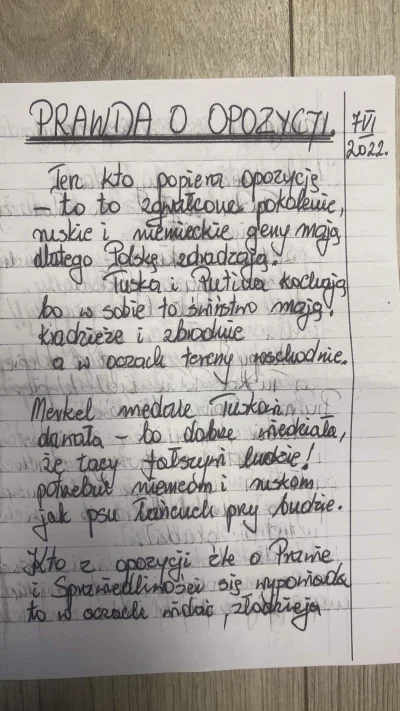 PRAWDA O OPOZYCJI.
7 VI
2022.
Ten kto popiera opozycję
- to to zgwałcone pokolenie,
ruskie i niemieckie geny mają
dlatego Polskę zdradzają!
Tuska i Putina kochają
bo w sobie to świństwo mają!
kradzieże i zbrodnie
a w oczach tereny wschodnie.
Merkel medale Tuskowi
dawała - bo dobrze wiedziała,
że tacy fałszywi ludzie!
potrzebni niemcom i ruskom
jak psu łańcuch przy budzie.
Kto z opozycji źle o Prawie
i Sprawiedliwości się wypowiada
to w oczach widać, złodzieja